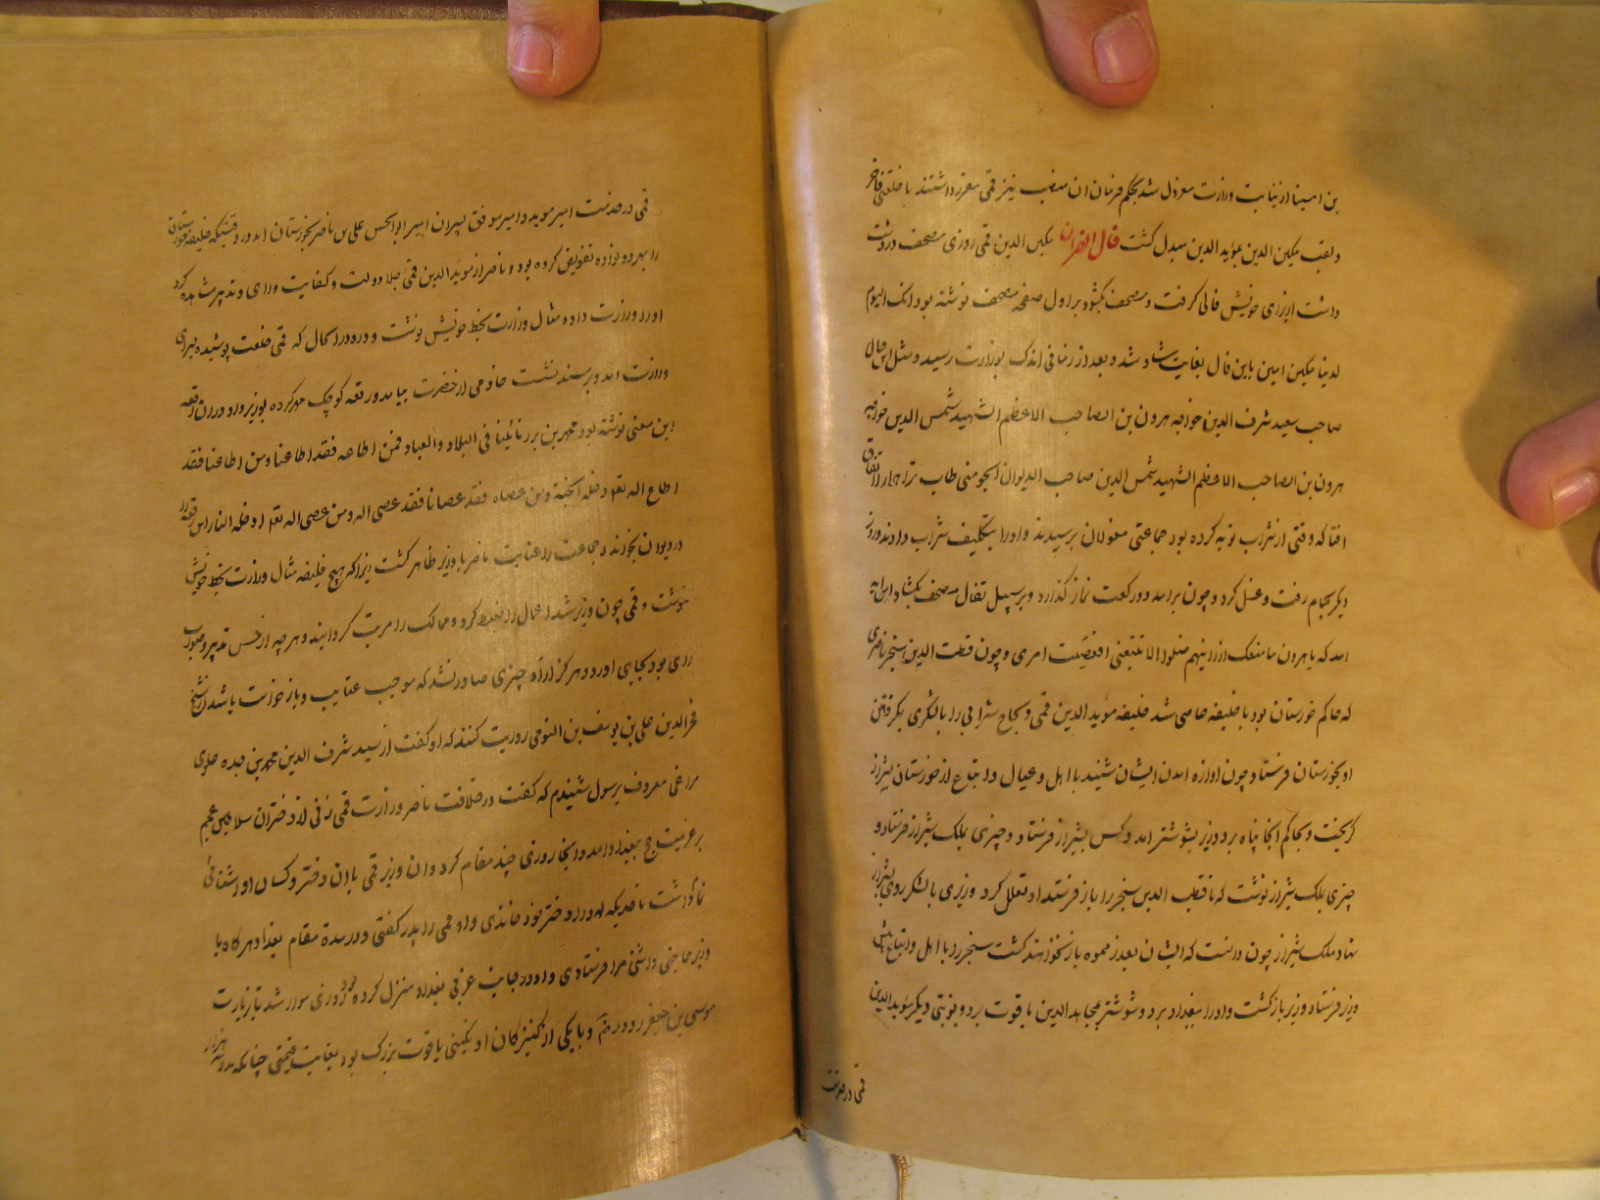 بن امینا از نیابت وزارت معزول شد بحکم فرمان ان منصب نیز قمی مقرر داشتند با خلعتی فاخر
ولقب مکین الدین بمؤید الدین مبدل کشت فال القران مکین الدین قمی روزی مصحف در دست
داشت از برای خویش فالی کرفت و مصحف بکشود بر اول صفحه مصحف نوشته بود انک الیوم
لدینا مکین امین باین فال بغایت شاد شد و بعد از زمانی اندک بوزارت رسید و مثل این فال
صاحب سعید شرف الدین خواجه هرون بن الصاحب الاعظم الشهید شمس الدین خواجه
هرون بن الصاحب الاعظم الشهید شمس الدین صاحب الدیوان الجوینی طاب ثراهما را اتفاق
افتاد که وقتی از شراب توبه کرده بود جماعتی مغولان برسیدند و اورا بتکلیف شراب دادند و روز
دیکر بحمام رفت و غسل کرد و چون برامد دو رکعت نماز کذارد و بر سبیل تفال مصحف بکشاد این ایه
امد که یا هرون ما منعک اذ رایتهم ضلوا الا تتبعنی افعصیت امری و چون قطب الدین سنجر ناصری
که حاکم خوزستان بود با خلیفه عاصی شد خلیفه مؤید الدین قمی و نجاح شرابی را با لشکری بکرفتن
او بخوزستان فرستاد چون اوازه امدن ایشان شنید با اهل و عیال و اتباع از خوزستان بشیراز
کریخت و بحاکم انجا پناه برد وزیر بشوشتر امد و کس بشیراز فرستاد و چیزی بملک شیراز فرستاد و
چیزی بملک شیراز نوشت که تا قطب الدین سنجر را باز فرستد او تعلل کرد وزیری با لشکر روی بشیراز
نهاد ملک شیراز چون دانست که ایشان بعذر و مموه باز نخواهند کشت سنجر را با اهل و اتباع پیش
وزیر فرستاد وزیر باز کشت و اورا ببغداد برد و شوشتر بمجاهد الدین یاقوت برد و نوبتی دیکر مؤید الدین
قمی در خدمت
قمی در خدمت امیر موید و امیر موفق پسران امیر ابو الحسن علی بن ناصر بخوزستان امد و در وقتیکه خلیفه خوزستان
را بهر دو نواده تفویض کرده بود و ناصر از موید الدین قمی جلادت و کفایت و رای و تدبیر مشاهده کرد
اورا وزارت داد و مثال وزارت بخط خویش نوشت و در ان حال که قمی خلعت پوشیده بسرای
وزارت امد و بر مسند نشست خادمی از حضرت بیامد و رقعه کوچک مهر کرده بوزیر داد و در ان رقعه
این معنی نوشته بود محمد بن برز نائبنا فی البلاد والعباد فمن اطاعه فقد اطاعنا ومن اطاعنا فقد
اطاع الله تعه ادخله الجنة ومن عصاه فقد عصانا فقد عصی الله ومن عصی الله تعه ادخله النار این رقعه را
در دیوان بخواند و جماعت را عنایت ناصر با وزیر ظاهر کشت زیرا که هیچ خلیفه مثال وزارت بخط خویش
ننوشت و قمی چون وزیر شد اعمال را ضبط کرد و ممالک را مرتب کردانید و هرچه از حسن تدبیر و صواب
رای بود بجای اورد و هرکز از او چیزی صادر نشد که موجب عتاب و باز خواست باشد از شیخ
فخر الدین علی بن یوسف بن البوقی روایت کنند که او کفت از سید شرف الدین محمد بن صده علوی
مراغی معروف برسول شنیدم که کفت در خلافت ناصر و وزارت قمی زنی از دختران سلاطین عجم
بر عزیمت حج ببغداد امد و انجا روزی چند مقام کرد و ان وزیر قمی با ان دختر و کسان او اشنائی
نداشت تا حدیکه او را دختر خود خواندی و او قمی را پدر کفتی و در مدة مقام بغداد هرکاه با
وزیر حاجتی داشتی مرا فرستادی و او در جانب غربی بغداد منزل کرده بود روزی سوار شد تا زیارت
موسی بن جعفر رود و رضه و با یکی از کنیزکان او نکینی یاقوت بزرک بود بغایت قیمتی چنانکه بده هزار